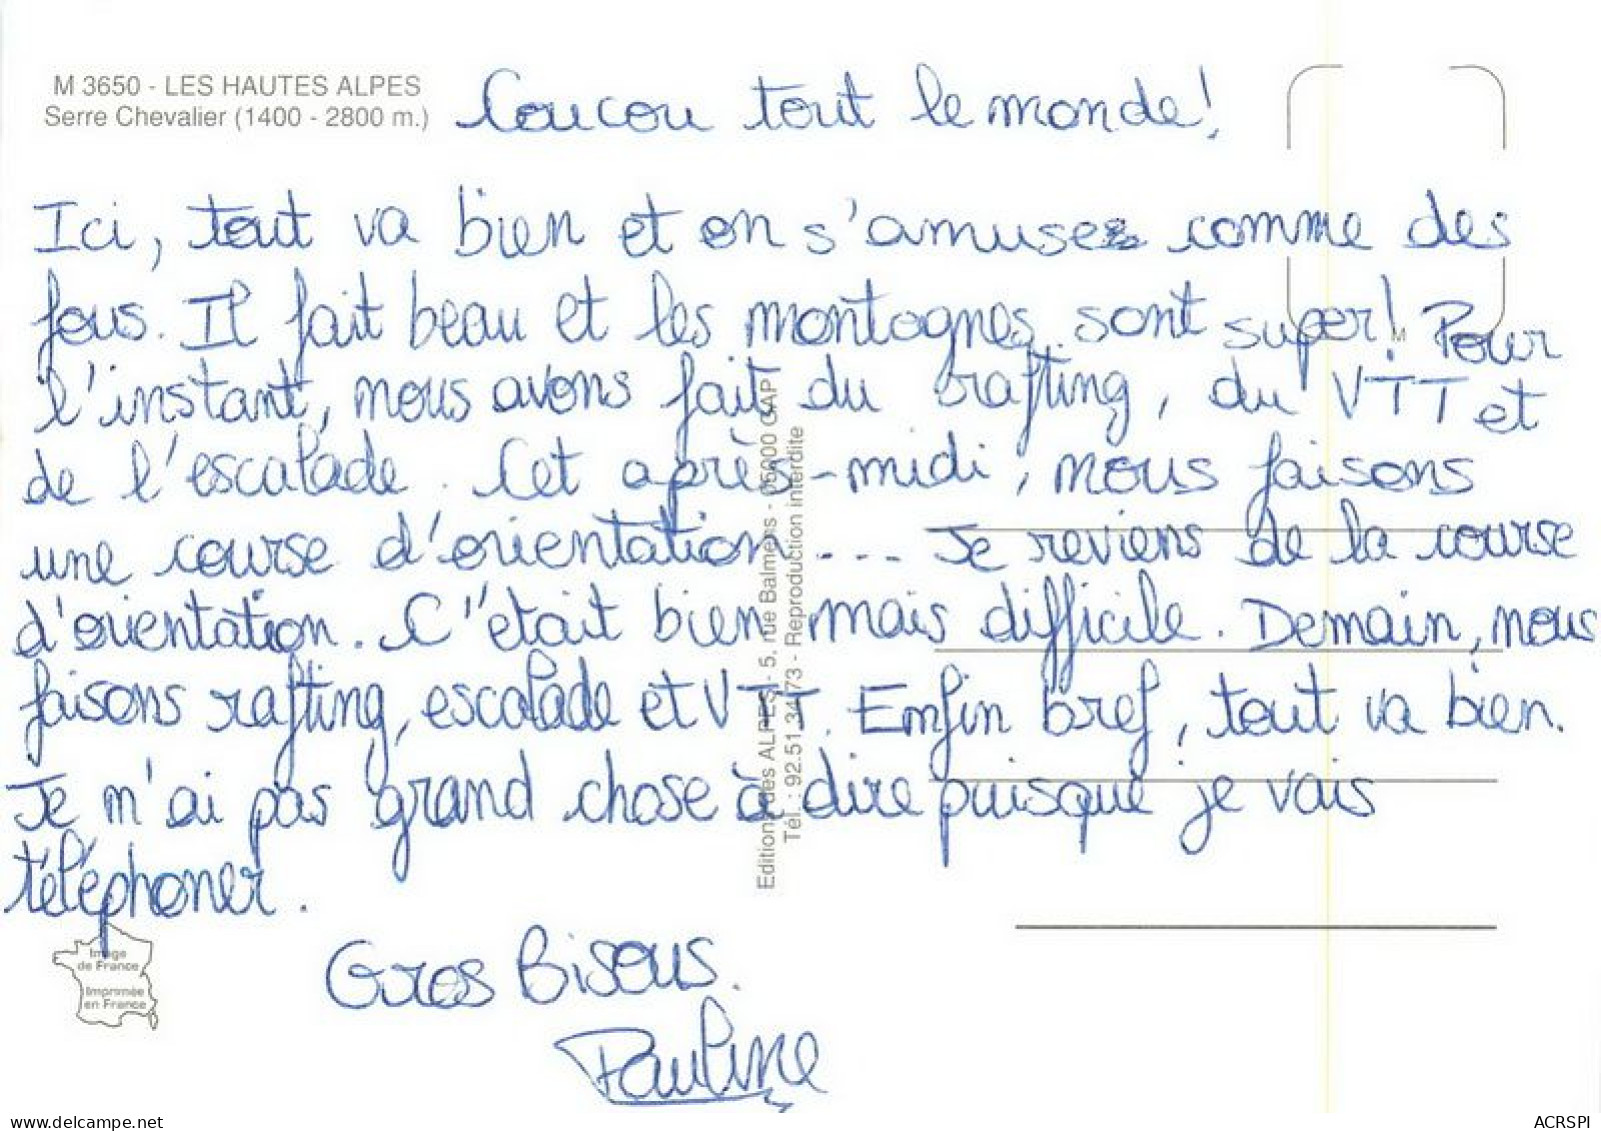 M 3650 - LES HAUTES ALPES
Serre Chevalier (1400 - 2800 m.)
Coucou tout le monde !
Ici, tout va bien et on s'amuse comme des
fous. Il fait beau et les montagnes sont super ! Pour
l'instant, nous avons fait du rafting, du VTT et
de l'escalade. Cet après-midi, nous faisons
une course d'orientation... Je reviens de la course
d'orientation. C'était bien mais difficile. Demain, nous
faisons rafting, escalade et VTT. Enfin bref, tout va bien.
Je m'ai pas grand chose à dire puisque je vais
téléphoner.
Gros Bisous.
Pauline
Editions des ALPES - 5, rue Balmens - 05000 GAP
Tél. : 92.51.34.73 - Reproduction interdite
M
Image
de France
Imprimée
en France
www.delcampe.net
ACRSPI